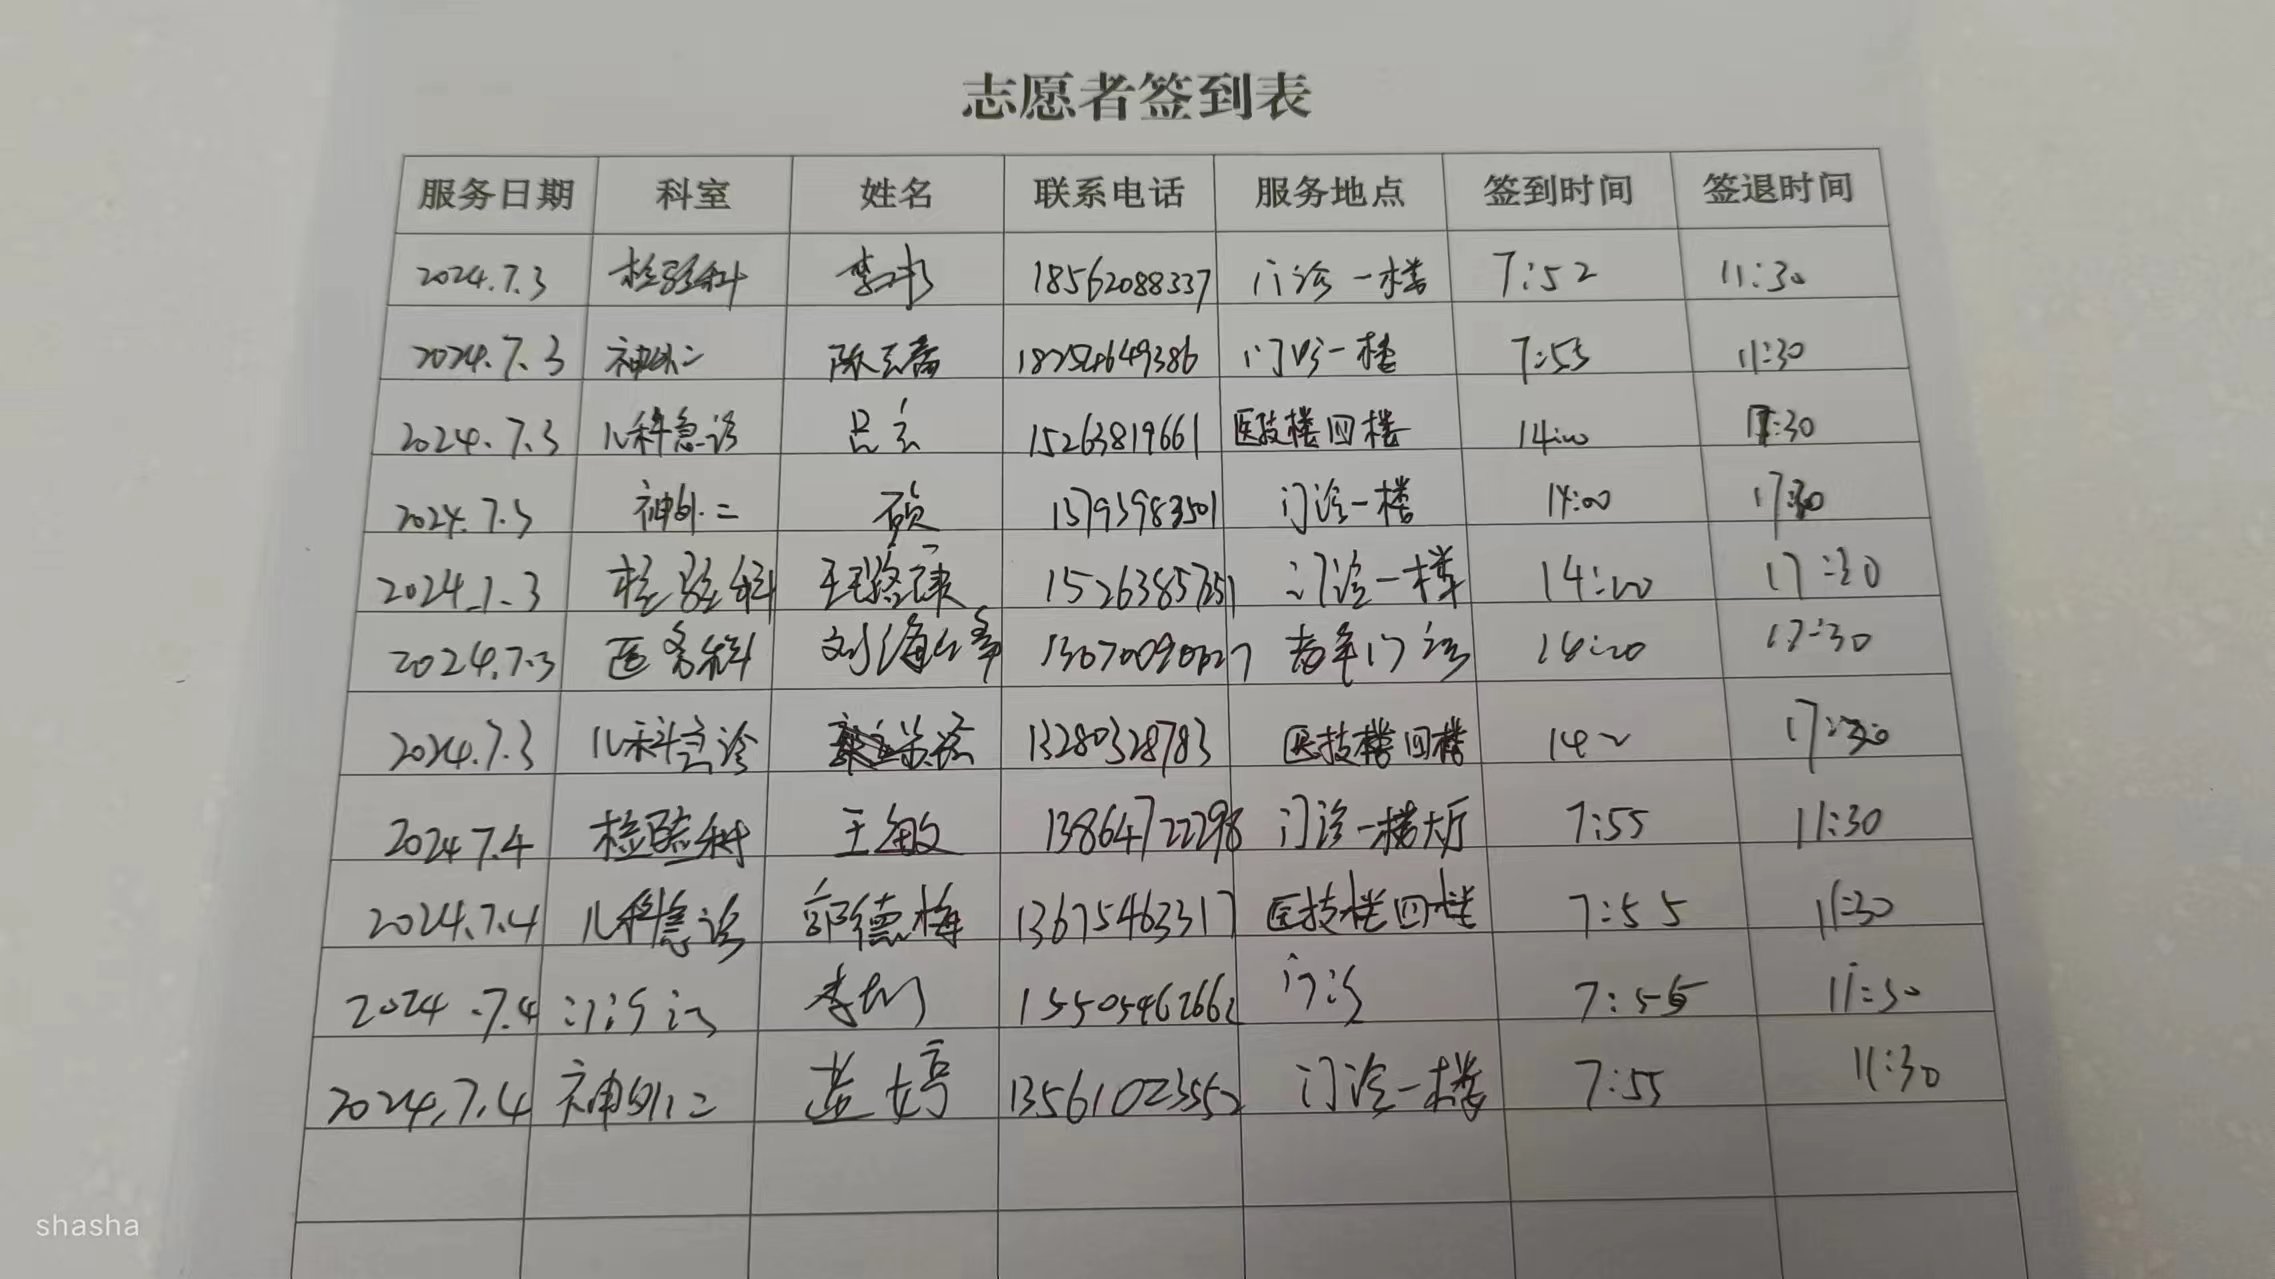 志愿者签到表
服务日期 科室 姓名 联系电话 服务地点 签到时间 签退时间
2024.7.3 检验科 18562088337 门诊一楼 7:52 11:30
2024.7.3 神外二 陈玉 18254649386 门诊一楼 7:55 11:30
2024.7.3 儿科急诊 吕玄 15263819661 医技楼四楼 14:00 17:30
2024.7.3 神外二 硕 13793983501 门诊一楼 14:00 17:30
2024.7.3 检验科 王 门诊一楼 14:00 17:30
2024.7.3 医务科 刘海 老年门诊 14:00 17:30
2024.7.3 儿科急诊 13280328783 医技楼四楼 14 17:30
2024.7.4 检验科 王敏 13864722298 门诊一楼大厅 7:55 11:30
2024.7.4 儿科急诊 郭德梅 13675463317 医技楼四楼 7:55 11:30
2024.7.4 李 15505462662 门诊 7:55 11:30
2024.7.4 神外二 婷 13561023552 门诊一楼 7:55 11:30
shasha